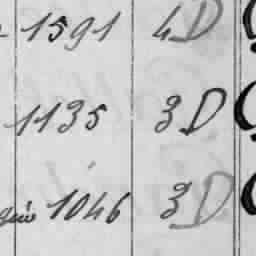 1591 4D
1135 3D
1046 3D